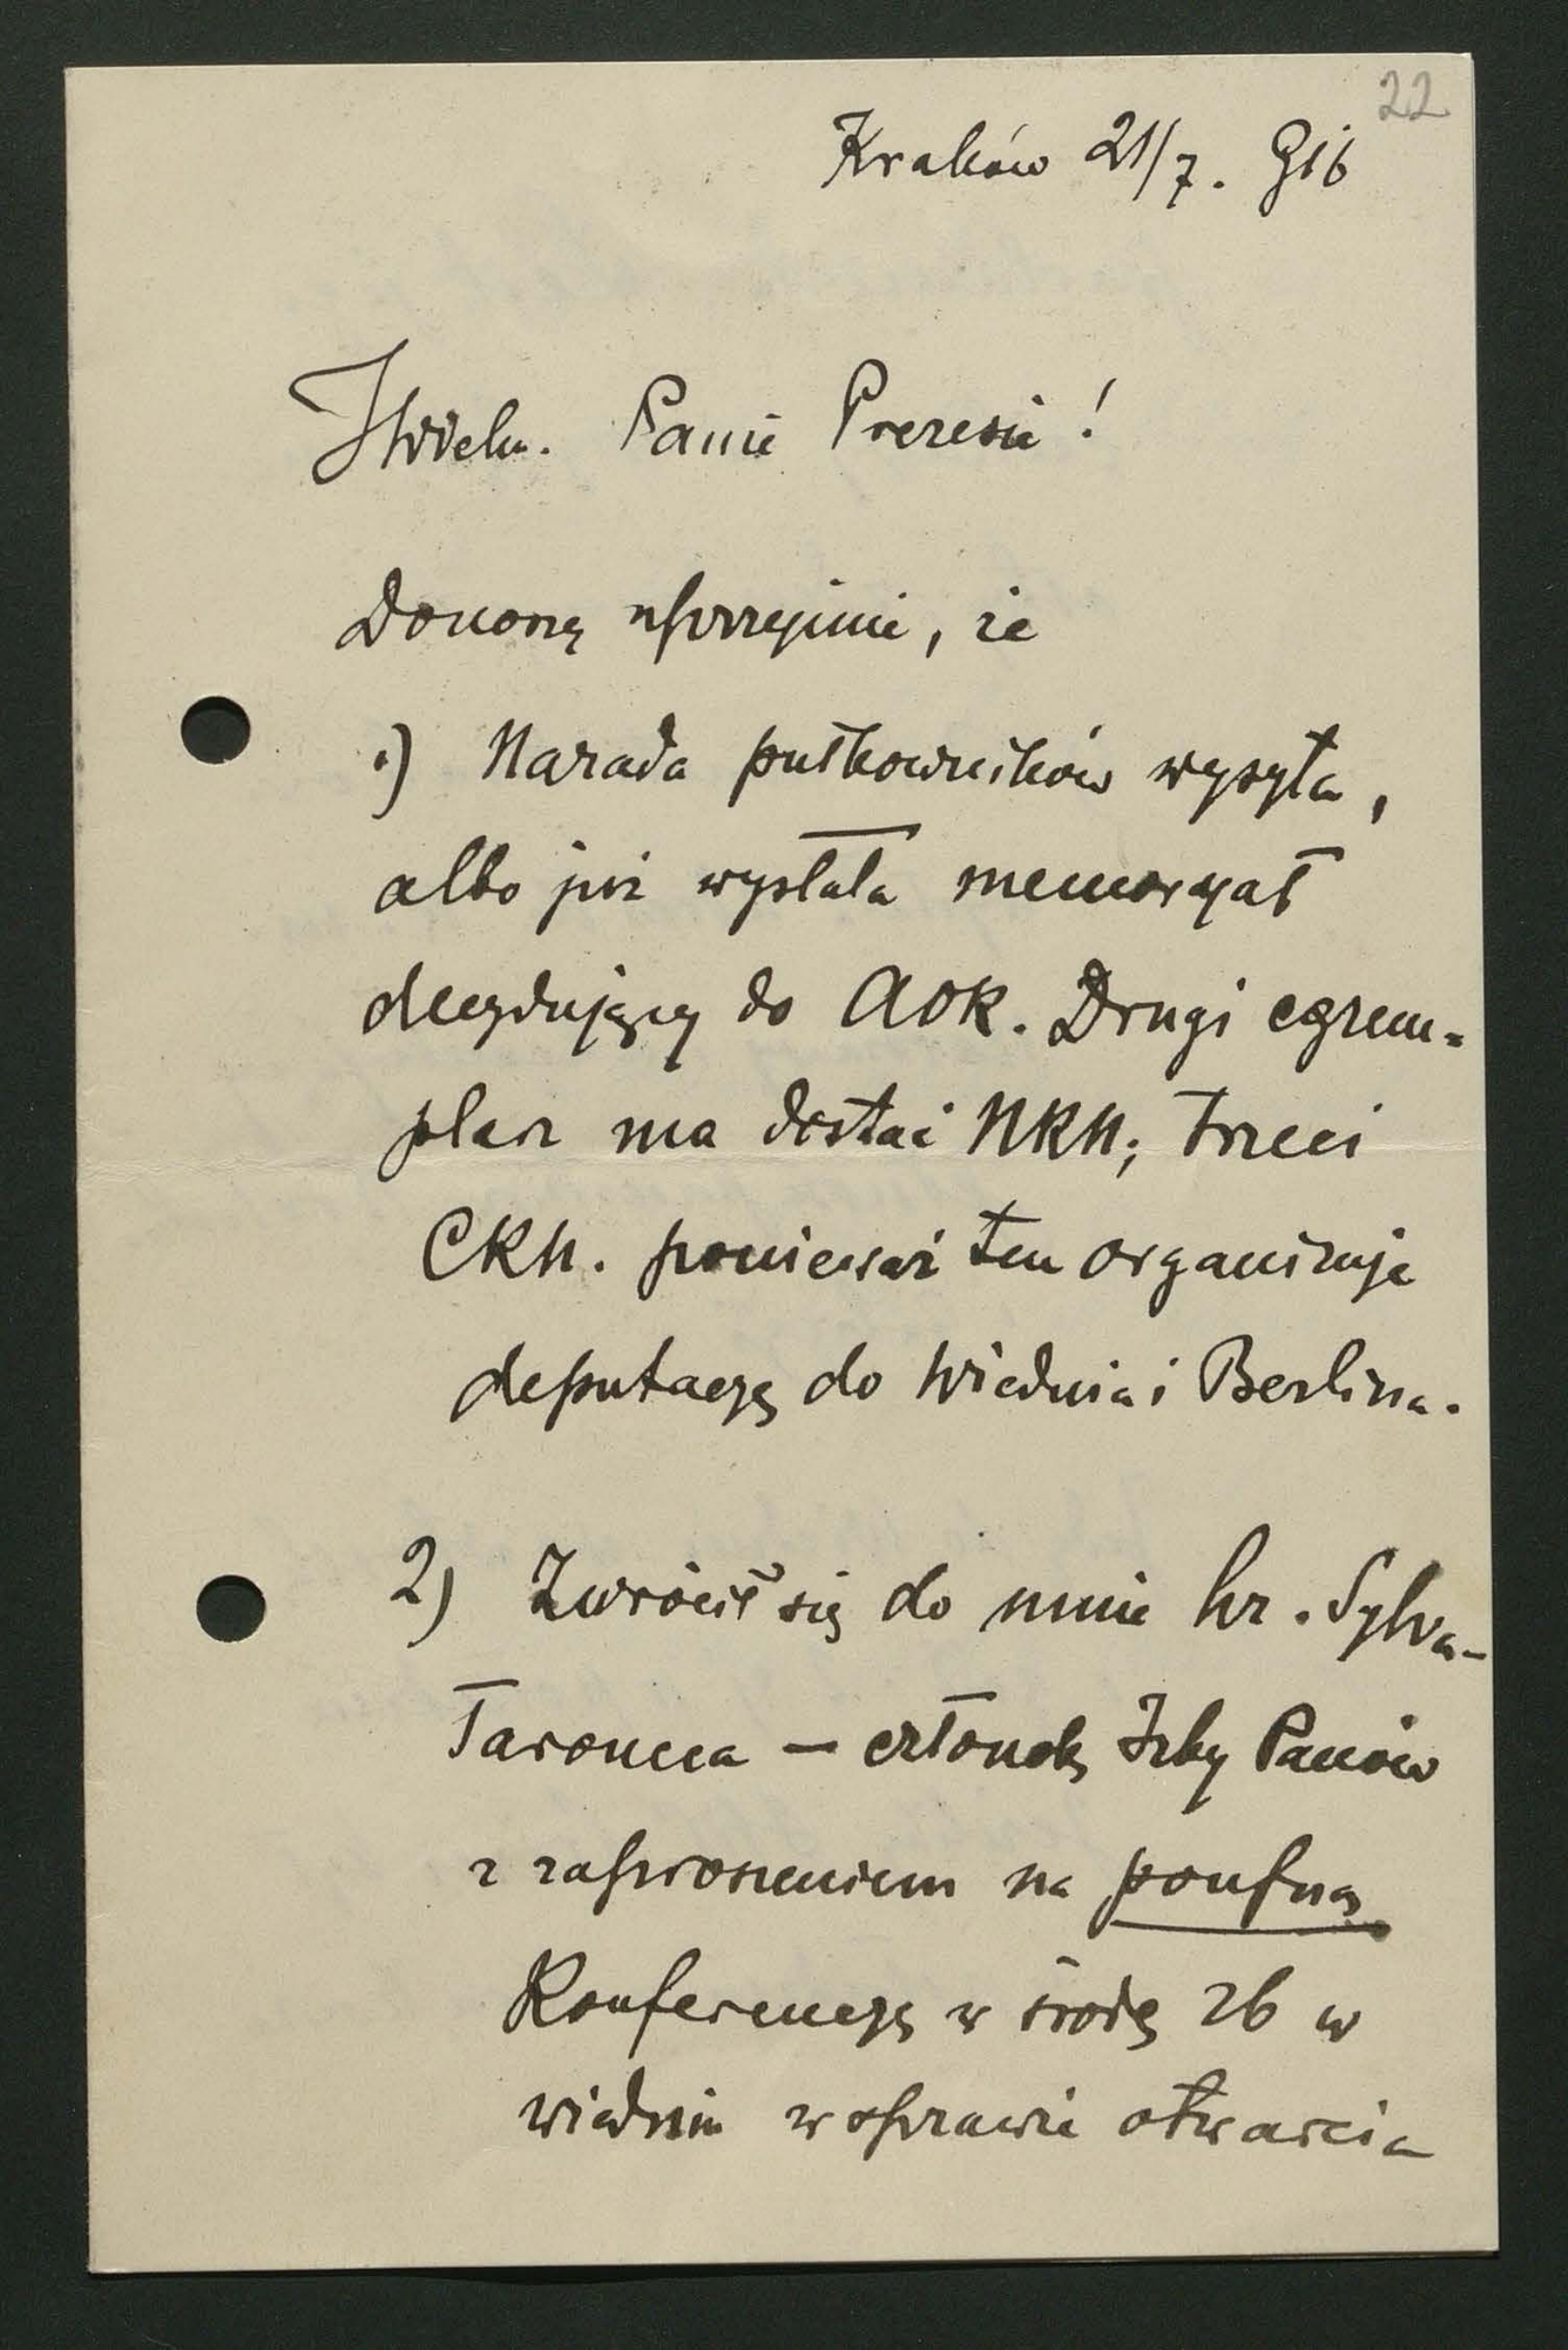 22
Kraków 21/7. 916
JWielm. Panie Prezesie!
Donoszę uprzejmie, że
1) Narada pułkowników wysyła,
albo już wysłała memoryał
decydujący do AOK. Drugi egzem=
plarz ma dostać NKN; trzeci
CKN. ponieważ ten organizuje
deputacyę do Wiednia i Berlina.
2) Zwrócił się do mnie hr. Sylva-
Taroucca — członek Izby Panów
z zaproszeniem na poufną
Konferencyę w środę 26 w
Wiedniu w sprawie otwarcia